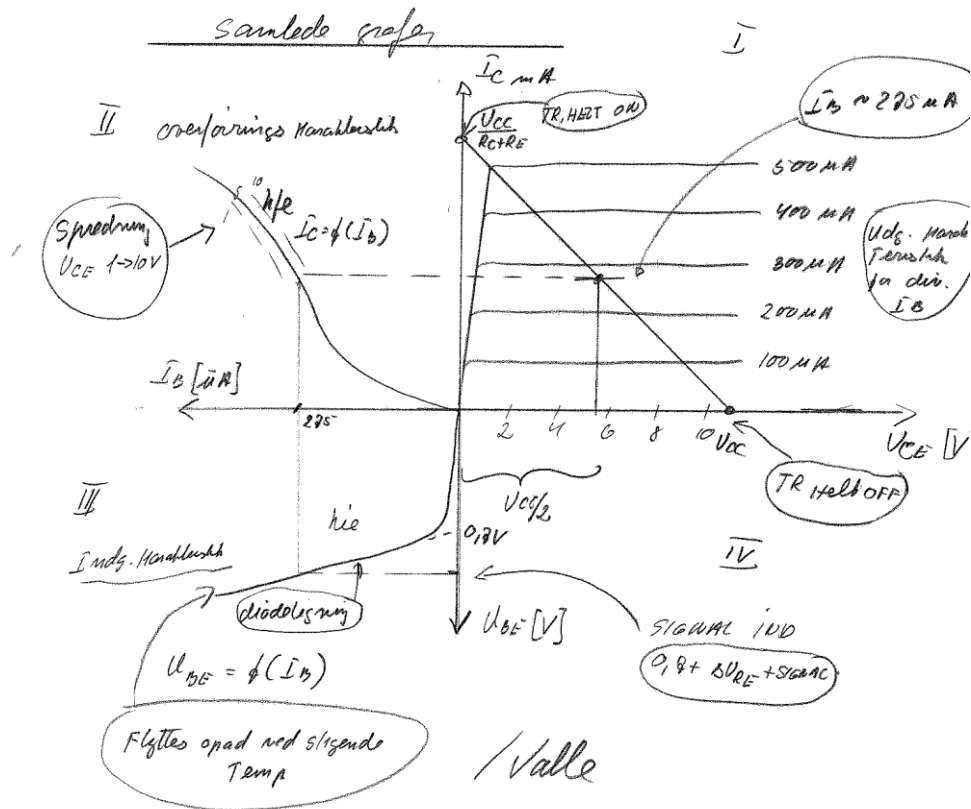 Samlede grafer
I
II
overførings Karakteristik
IC mA
UCC
RC+RE
TR. HELT ON
IB ~ 275 µA
500 µA
400 µA
300 µA
200 µA
100 µA
Udg. Karak
Teristik
for div.
IB
Spredning
UCE 1→10V
5
10
hfe
IC=ϕ(IB)
IB [µA]
275
2
4
6
8
10
UCC
UCE [V
TR Helt OFF
UCC/2
III
hie
0,7V
IV
Indg. Karakteristik
diodeligning
UBE [V]
SIGNAL IND
0,7+ ΔURE+SIGNAL
UBE = ϕ(IB)
Flyttes opad ved stigende
Temp
/Valle